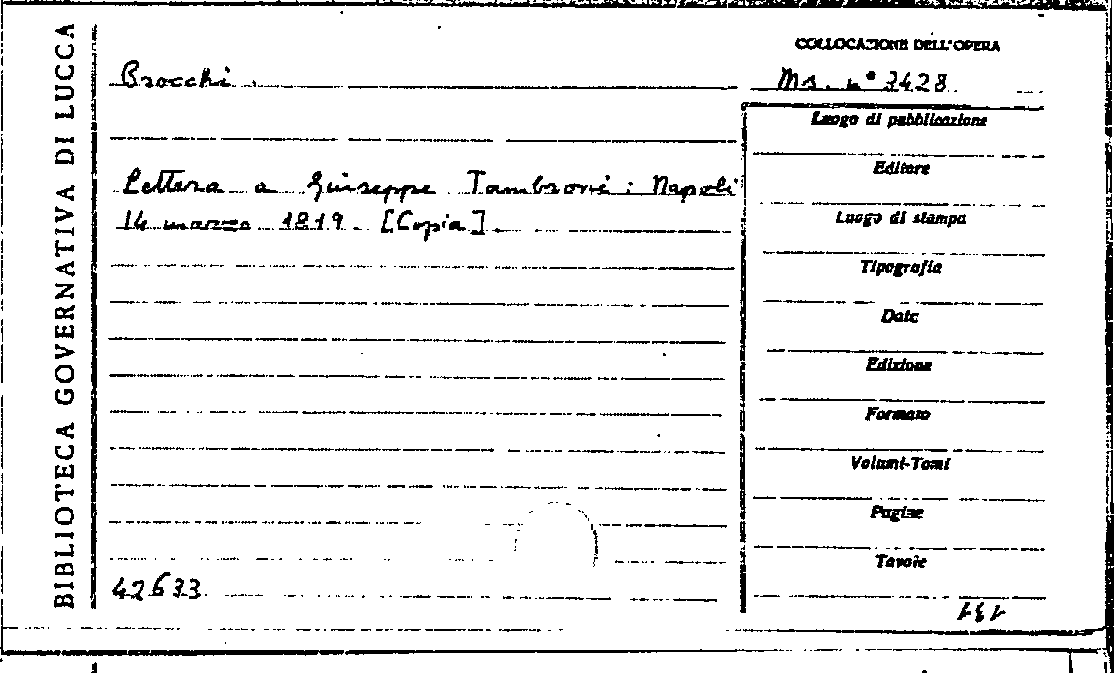 BIBLIOTECA GOVERNATIVA DI LUCCA
COLLOCAZIONE DELL'OPERA
Brocchi.
Ms. n° 3428
Luogo di pubblicazione
Lettera a Giuseppe Tambroni: Napoli
14 marzo 1819. [Copia].
Editore
Luogo di stampa
Tipografia
Date
Edizione
Formato
Volumi-Tomi
Pagine
Tavole
42633